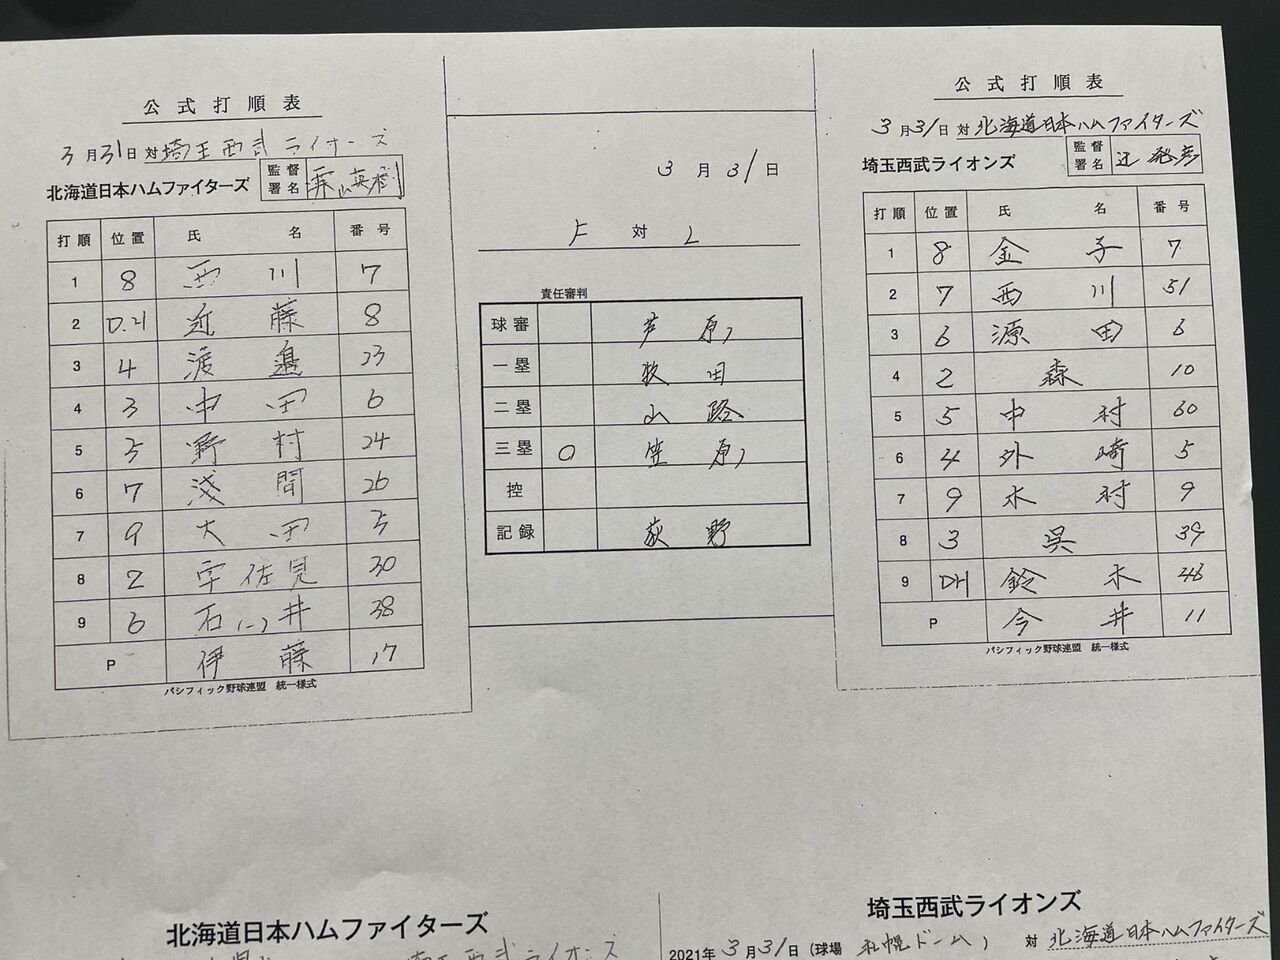 公式打順表
3月31日対埼玉西武ライオーズ
北海道日本ハムファイターズ 監督署名 栗山英樹
打順 位置 氏名 番号
1 8 西川 7
2 D.H 近藤 8
3 4 渡邉 23
4 3 中田 6
5 5 野村 24
6 7 淺間 26
7 9 大田 3
8 2 宇佐見 30
9 6 石(一)井 38
P 伊藤 17
パシフィック野球連盟 統一様式
3月31日
F 対 L
責任審判
球審 芦原
一塁 牧田
二塁 山路
三塁 ○ 笠原
控
記録 荻野
公式打順表
3月31日対北海道日本ハムファイターズ
埼玉西武ライオンズ 監督署名 辻発彦
打順 位置 氏名 番号
1 8 金子 7
2 7 西川 51
3 6 源田 6
4 2 森 10
5 5 中村 60
6 4 外崎 5
7 9 木村 9
8 3 呉 39
9 DH 鈴木 46
P 今井 11
パシフィック野球連盟 統一様式
北海道日本ハムファイターズ
埼玉西武ライオンズ
埼玉西武ライオンズ
2021年3月31日(球場 札幌ドーム) 対 北海道日本ハムファイターズ